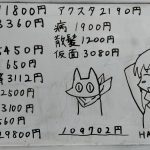 11800円
3360円
アクスタ2190円
病 1900円
散髪 1200円
仮面 3080円
5450円
650円
3112円
2500円
3100円
560円
29800円
109702円
HA